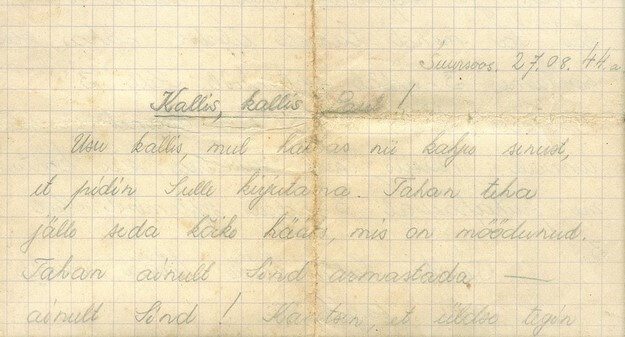 Suursoos, 27.08.44.a
Kallis, kallis !
Usu kallis, mul hakkas nii kahju sinust,
et pidin Sulle kirjutama. Tahan teha
jälle seda kõike hääks, mis on möödunud.
Tahan ainult Sind armastada —
ainult Sind ! , et üldse tegin